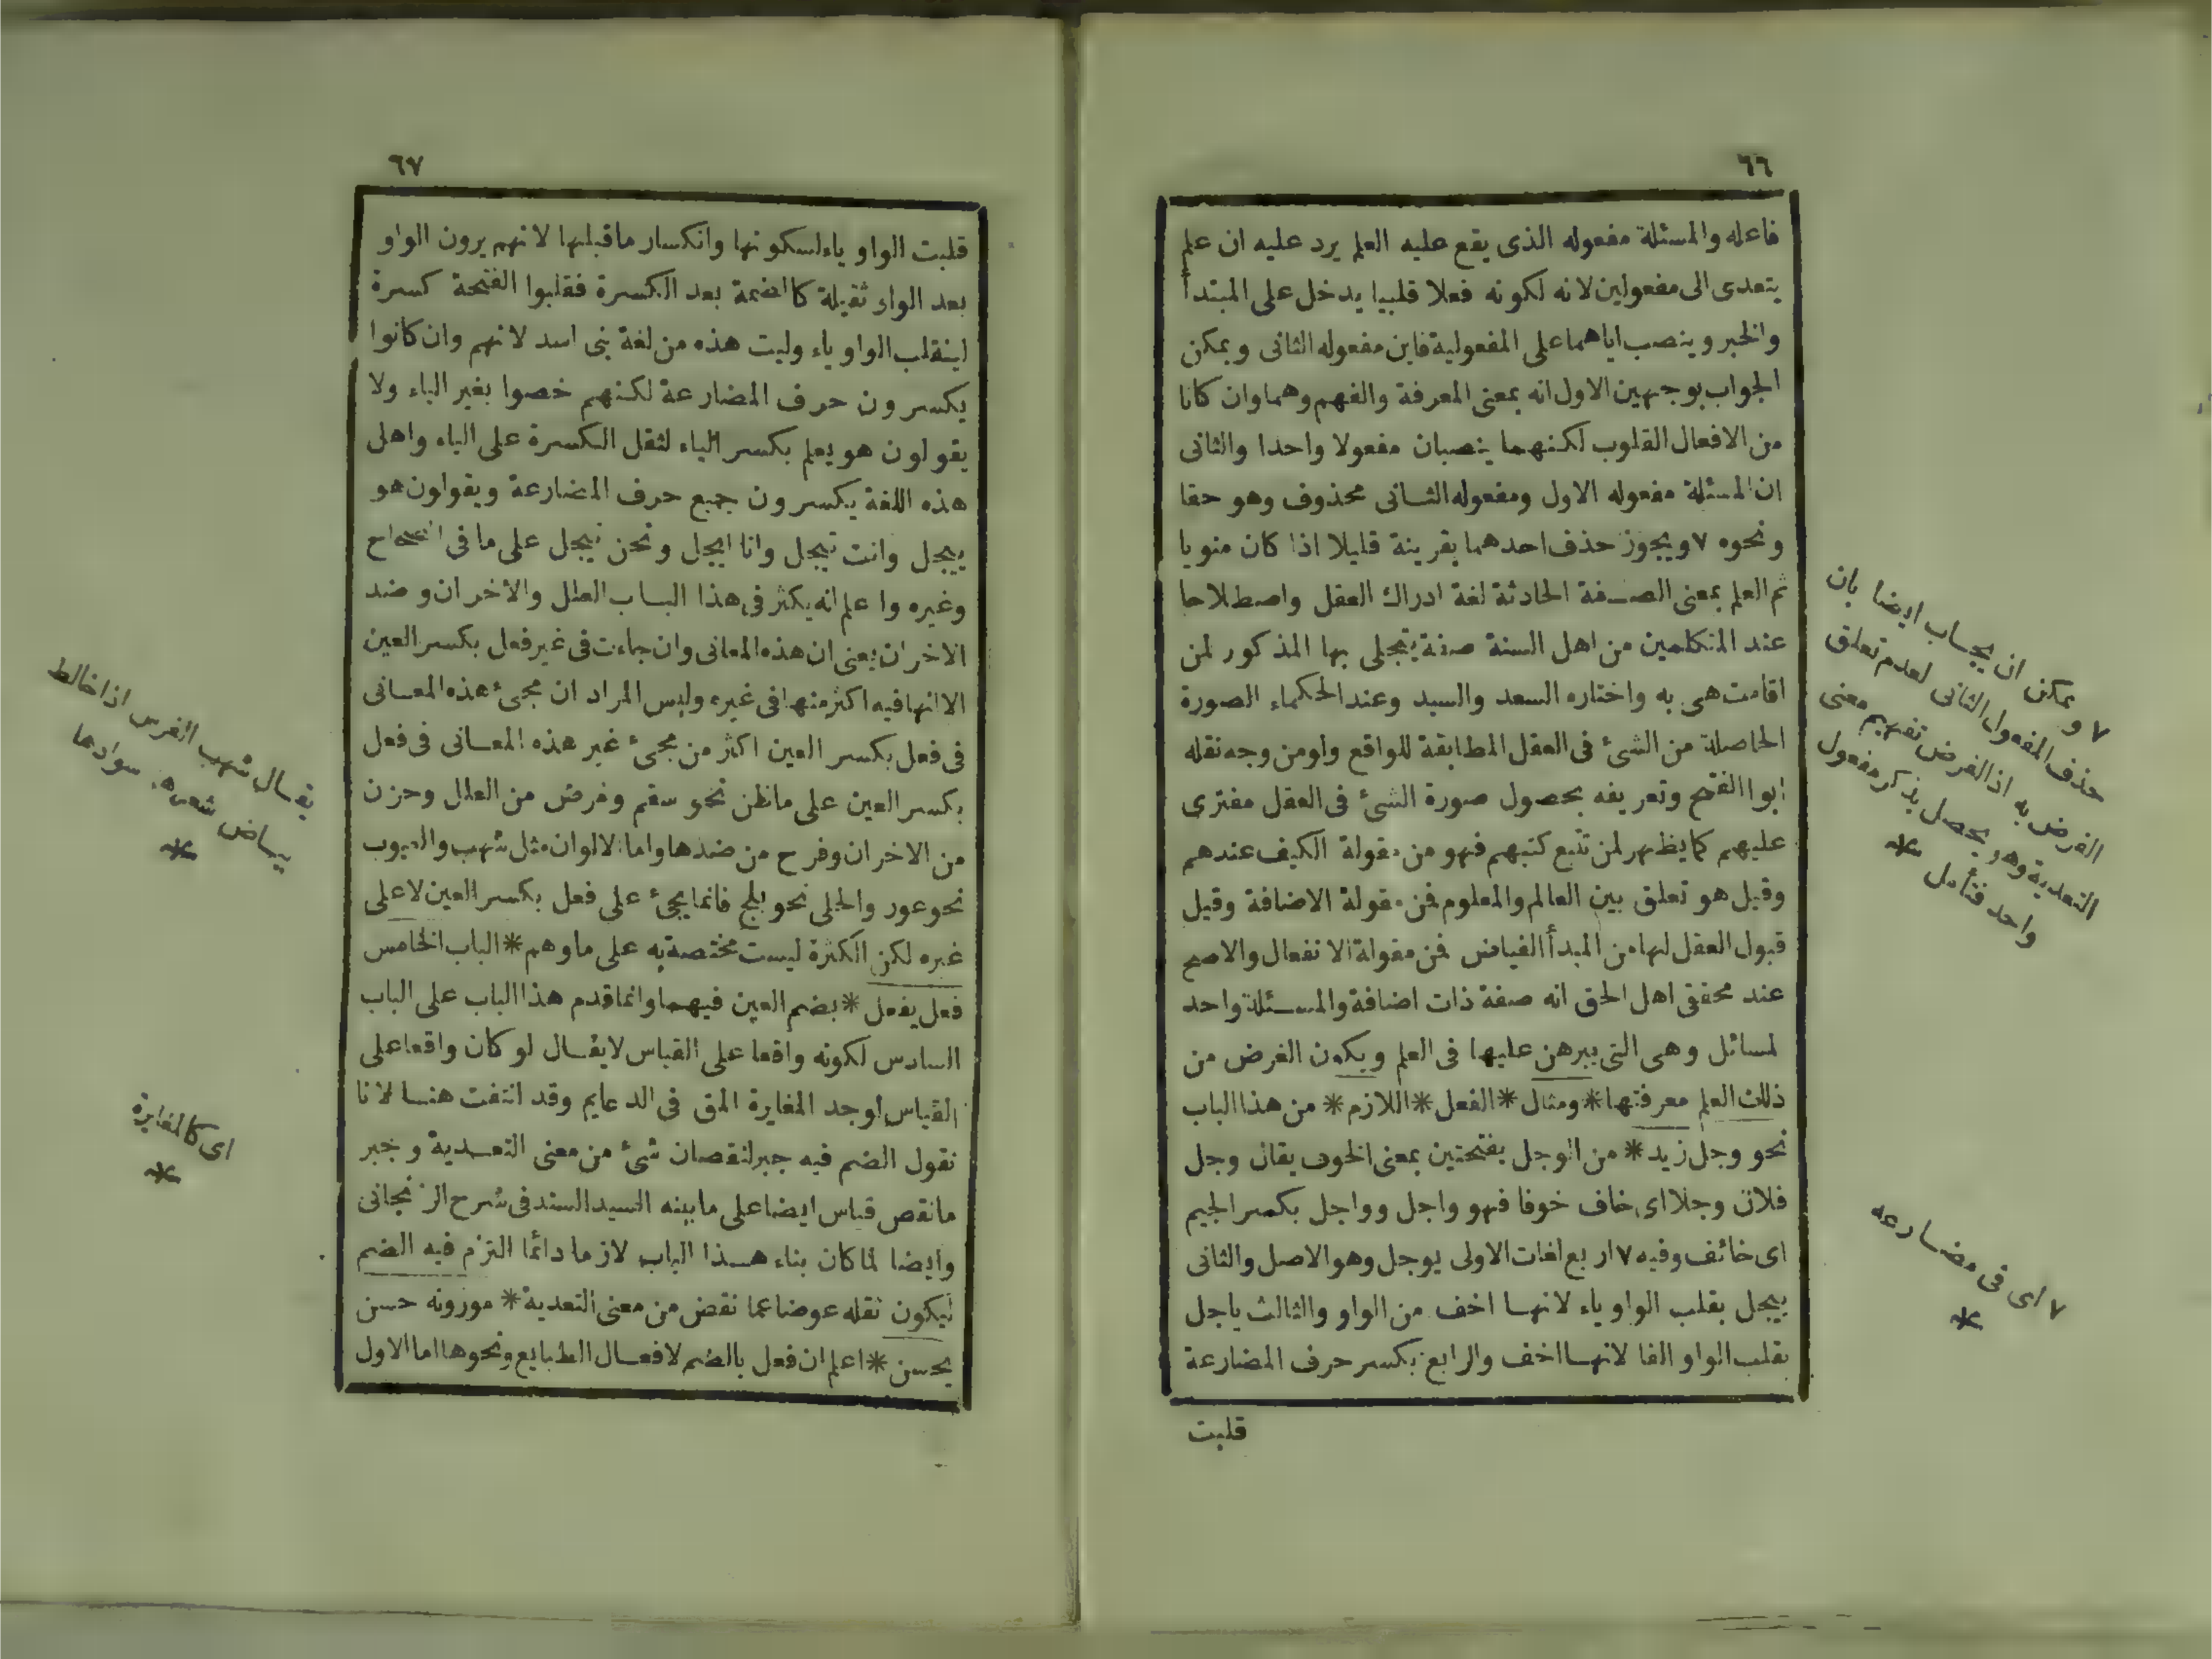 ٦٦
فاعله والمسئلة مفعوله الذى يقع عليه العلم يرد عليه ان علم
يتعدى الى مفعولين لانه لكونه فعلا قلبيا يدخل على المبتدأ
والخبر وينصب اياهما على المفعولية فاين مفعوله الثانى ويمكن
الجواب بوجهين الاول انه بمعنى المعرفة والفهم وهما وان كانا
من الافعال القلوب لكنهما ينصبان مفعولا واحدا والثانى
ان المسئلة مفعوله الاول ومفعوله الثانى محذوف وهو حقا
ونحوه ٧ ويجوز حذف احدهما بقرينة قليلا اذا كان منويا
ثم العلم بمعنى الصفة الحادثة لغة ادراك العقل واصطلاحا
عند المتكلمين من اهل السنة صفة يتجلى بها المذكور لمن
اقامت هى به واختاره السعد والسيد وعند الحكماء الصورة
الحاصلة من الشئ فى العقل المطابقة للواقع ولو من وجه نقله
ابوا الفتح وتعريفه بحصول صورة الشئ فى العقل مفترى
عليهم كما يظهر لمن تتبع كتبهم فهو من مقولة الكيف عندهم
وقيل هو تعلق بين العالم والمعلوم فمن مقولة الاضافة وقيل
قبول العقل لها من المبدأ الفياض فمن مقولة الانفعال والاصح
عند محققى اهل الحق انه صفة ذات اضافة والمسئلة واحد
لمسائل وهى التى يبرهن عليها فى العلم ويكون الغرض من
ذلك العلم معرفتها * ومثال * الفعل * اللازم * من هذا الباب
نحو وجل زيد * من الوجل بفتحتين بمعنى الخوف يقال وجل
فلان وجلا اى خاف خوفا فهو واجل وواجل بكسر الجيم
اى خائف وفيه ٧ اربع لغات الاولى يوجل وهو الاصل والثانى
ييجل بقلب الواو ياء لانها اخف من الواو والثالث ياجل
بقلب الواو الفا لانها اخف والرابع بكسر حرف المضارعة
قلبت
٧ ويمكن ان يجاب ايضا بان
حذف المفعول الثانى لعدم تعلق
الغرض به اذ الغرض تفهيم معنى
التعدية وهو يحصل بذكر مفعول
واحد فتأمل *
٧ اى فى مضارعه
*
٦٧
قلبت الواو ياء لسكونها وانكسار ما قبلها لانهم يرون الواو
بعد الواو ثقيلة كالضمة بعد الكسرة فقلبوا الفتحة كسرة
لينقلب الواو ياء وليت هذه من لغة بنى اسد لانهم وان كانوا
يكسرون حرف المضارعة لكنهم خصوا بغير الياء ولا
يقولون هو يعلم بكسر الياء لثقل الكسرة على الياء واهل
هذه اللغة يكسرون جميع حرف المضارعة ويقولون هو
ييجل وانت تيجل وانا ايجل ونحن نيجل على ما فى الصحاح
وغيره واعلم انه يكثر فى هذا الباب العلل والاخران وضد
الاخران يعنى ان هذه المعانى وان جاءت فى غير فعل بكسر العين
الا انها فيه اكثر منها فى غيره وليس المراد ان مجئ هذه المعانى
فى فعل بكسر العين اكثر من مجئ غير هذه المعانى فى فعل
بكسر العين على ما ظن نحو سقم ومرض من العلل وحزن
من الاخران وفرح من ضدها واما الالوان مثل شهب والعيوب
نحو عور والحلى نحو بلج فانما يجئ على فعل بكسر العين لا على
غيره لكن الكثرة ليست مختصة به على ما وهم * الباب الخامس
فعل يفعل * بضم العين فيهما وانما قدم هذا الباب على الباب
السادس لكونه واقعا على القياس لا يقال لو كان واقعا على
القياس لوجد المغايرة المق فى الدعايم وقد انتفت هنا لانا
نقول الضم فيه جبر لنقصان شئ من معنى التعدية وجبر
ما نقص قياس ايضا على ما بينه السيد السند فى شرح الزنجانى
وايضا لما كان بناء هذا الباب لازما دائما التزم فيه الضم
ليكون ثقله عوضا عما نقص من معنى التعدية * موزونه حسن
يحسن * اعلم ان فعل بالضم لافعال الطبايع ونحوها اما الاول
يقال شهب الفرس اذا خالط
بياض شعره سوادها
*
اى كالمغايرة
*